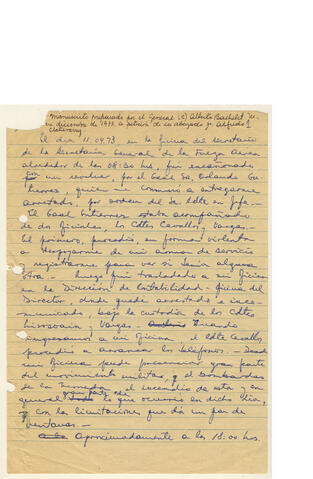 manuscrito preparado por el General (e) Alberto Bachelet
en diciembre de 1973 a petición de su abogado Sr. Alfredo 1
Etcheberry
El día 11.09.73, en la oficina del secretario
de la Secretaría General de la Fuerza Aérea
alrededor de las 08:30 hrs, fui encañonado
con un revólver, por el Gral Sr. Orlando Gu
tierrez, quien me conminó a entregarme
arrestado, por orden del Sr Cdte en Jefe.-
El Gral Gutierrez estaba acompañado
de dos oficiales, los Cdtes Cevallos y Vargas.-
El primero, procedió, en forma violenta
a despojarme de mi arma de servicio
y registrarme para ver si tenía alguna
otra.- Luego fui trasladado a mi oficina
en la Dirección de Contabilidad - oficina del
Director, donde quedé arrestado e inco-
municado, bajo la custodia de los Cdtes
y Vargas.- Cuando
ingresamos a mi oficina, el Cdte Cevallos
procedió a arrancar los teléfonos.- Desde
mi oficina pude presenciar gran parte
del movimiento militar y el bombardeo
de la Moneda, el incendio de esta y en
general gran parte de lo que ocurrió en dicho día,
con las limitaciones que da un par de
ventanas.-
Aproximadamente a las 18:00 hrs.